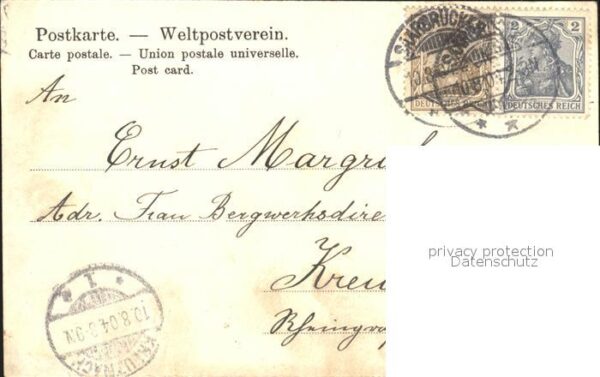 Postkarte. — Weltpostverein.
Carte postale. — Union postale universelle.
Post card.
An
Ernst Margra
Adr. Frau Bergwerksdire
Kreu
Rheingra
SAARBRÜCKEN
2
DEUTSCHES REICH
DEUTSCHES REICH
privacy protection
Datenschutz
1
10.8.04.8-9N
KREUZNACH